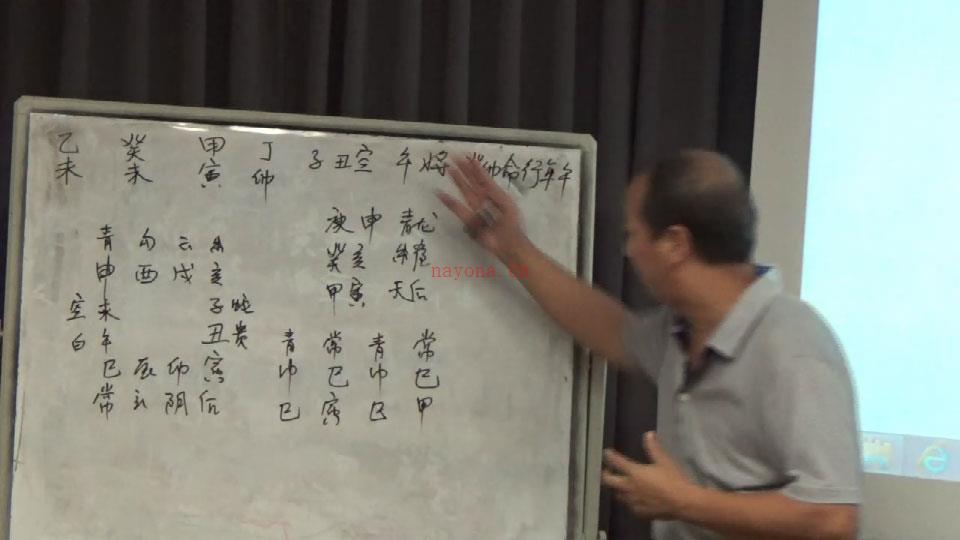 乙 癸 甲 丁 子丑空 午将 命行年午
未 未 寅 卯
庚申 青龙
癸亥
甲寅 天后
青 勾
申 酉 戌 亥
空 未 子 蛇
白 午 丑 贵
巳 辰 卯 寅
常 玄 阴 后
青 常 青 常
申 巳 申 巳
巳 寅 巳 甲
nayona.cn